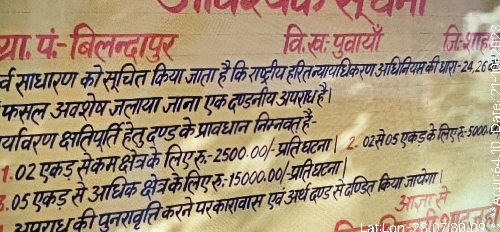 आवश्यक सूचना
ग्रा. पं.- बिलन्दापुर वि.ख: पुवायाँ जि:- शाह
र्व साधारण को सूचित किया जाता है कि राष्ट्रीय हरित न्यायधिकरण अधिनियम की धारा-24,26
फसल अवशेष जलाया जाना एक दण्डनीय अपराध है।
र्यावरण क्षतिपूर्ति हेतु दण्ड के प्रावधान निम्नवत् हैं-
1. 02 एकड़ से कम क्षेत्र के लिए रु.-2500.00/-प्रति घटना। 2. 02 से 05 एकड़ के लिए रु.-5000
3. 05 एकड़ से अधिक क्षेत्र के लिए रु.-15000.00/-प्रति घटना।
अपराध की पुनरावृत्ति करने पर कारावास एवं अर्थ दण्ड से दण्डित किया जायेगा।
आज्ञा से